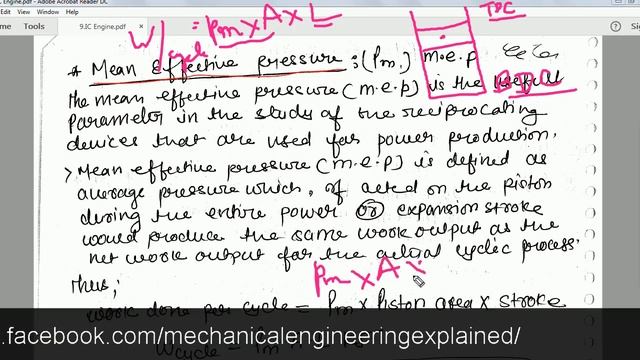 IC Engine.pdf - Adobe Acrobat Reader DC
View Window Help
Tools
9.IC Engine.pdf
Sign In
W/cycle = Pm × A × L
TDC
* Mean Effective pressure :- (Pm.) m.e.p
BDC
The mean effective pressure (m.e.p) is the useful
parameter in the study of the reciprocating
devices that are used for power production.
> Mean effective pressure (m.e.p) is defined as
average pressure which, if acted on the piston
during the entire power or expansion stroke
would produce the same work output as the
net work output for the actual cyclic process.
Pm × A ×
Thus;
work done per cycle = Pm × Piston area × stroke
.facebook.com/mechanicalengineeringexplained/
Wcycle = Pm